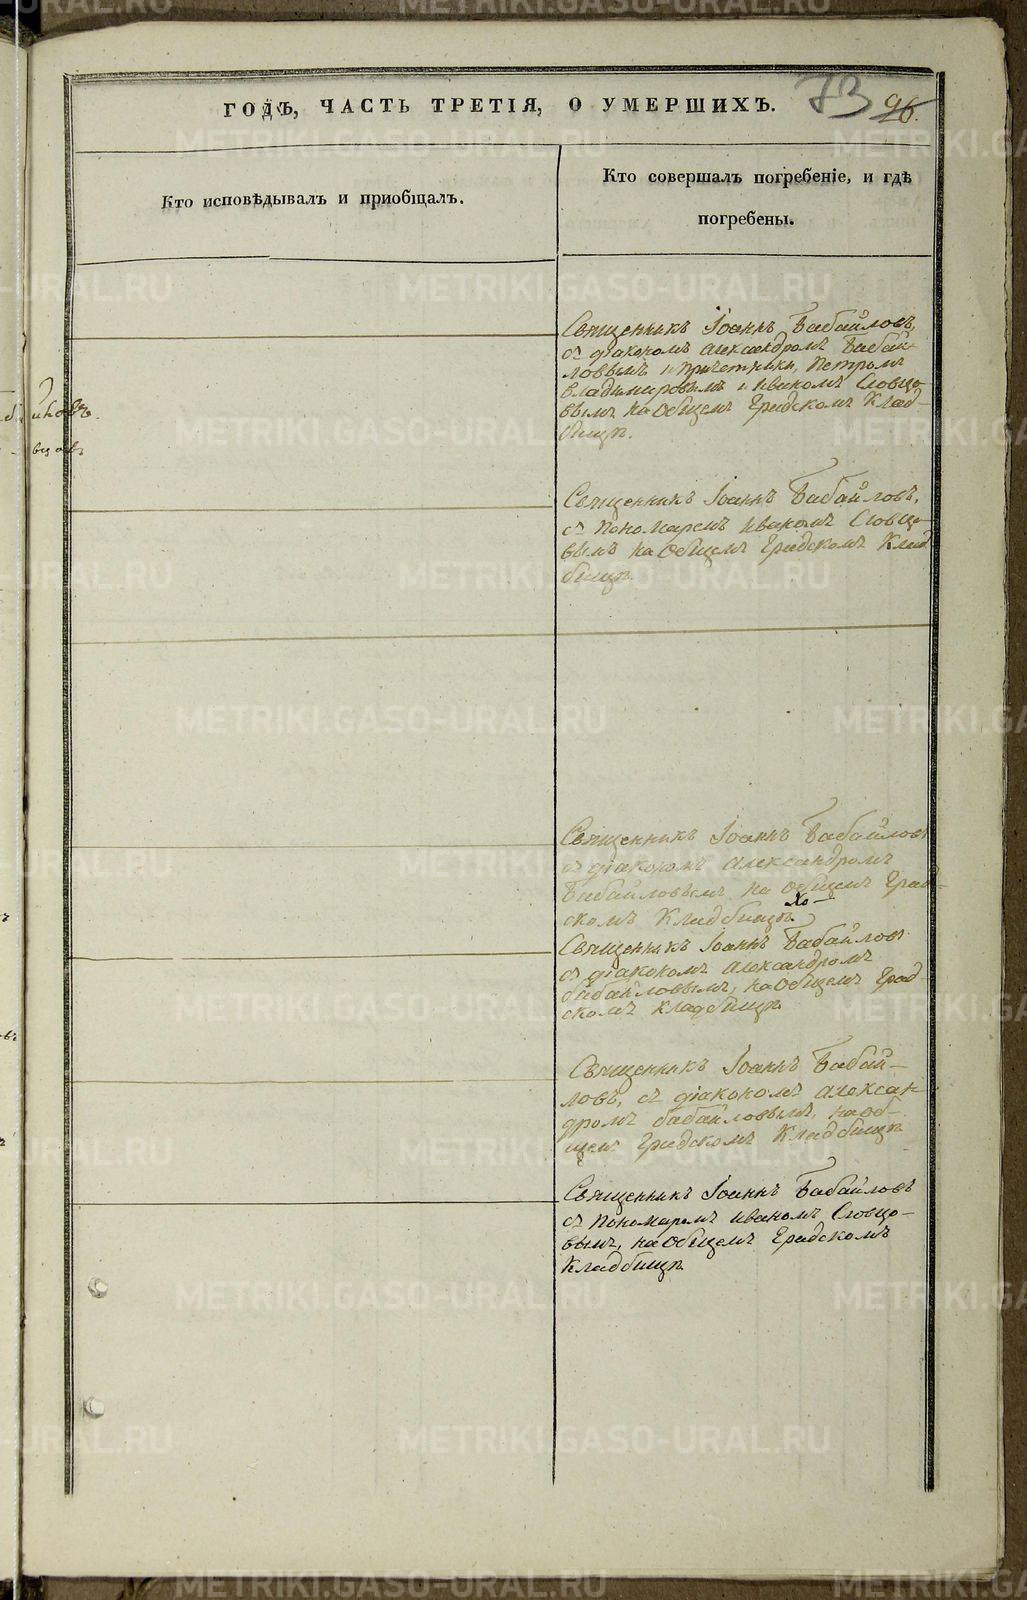 ГОДЪ, ЧАСТЬ ТРЕТІЯ, О УМЕРШИХЪ.
73 96.
Кто исповѣдывалъ и пріобщалъ.
Кто совершалъ погребеніе, и гдѣ
погребены.
Священникъ Іоаннъ Бабайловъ,
съ діакономъ Александромъ Бабай-
ловымъ и причетники, Петромъ
Владимировымъ и Иваномъ Словцо-
вымъ на общемъ Градскомъ Клад-
бищѣ.
Священникъ Іоаннъ Бабайловъ,
съ Пономаремъ Иваномъ Словцо-
вымъ на общемъ Градскомъ Клад
бищѣ.
Священникъ Іоаннъ Бабайловъ
съ діакономъ Александромъ
Бабайловымъ на общемъ Град-
скомъ Кладбищѣ
Священникъ Іоаннъ Бабайловъ
съ діакономъ Александромъ
бабайловымъ, на общемъ Град-
скомъ кладбищѣ
Священникъ Іоаннъ Бабай-
ловъ, съ діакономъ Алексан-
дромъ бабайловымъ, на об-
щемъ Градскомъ Кладбищѣ
Священникъ Іоаннъ Бабайловъ
съ Пономаремъ Иваномъ Словцо-
вымъ, на общемъ Градскомъ
Кладбищѣ
METRIKI.GASO-URAL.RU